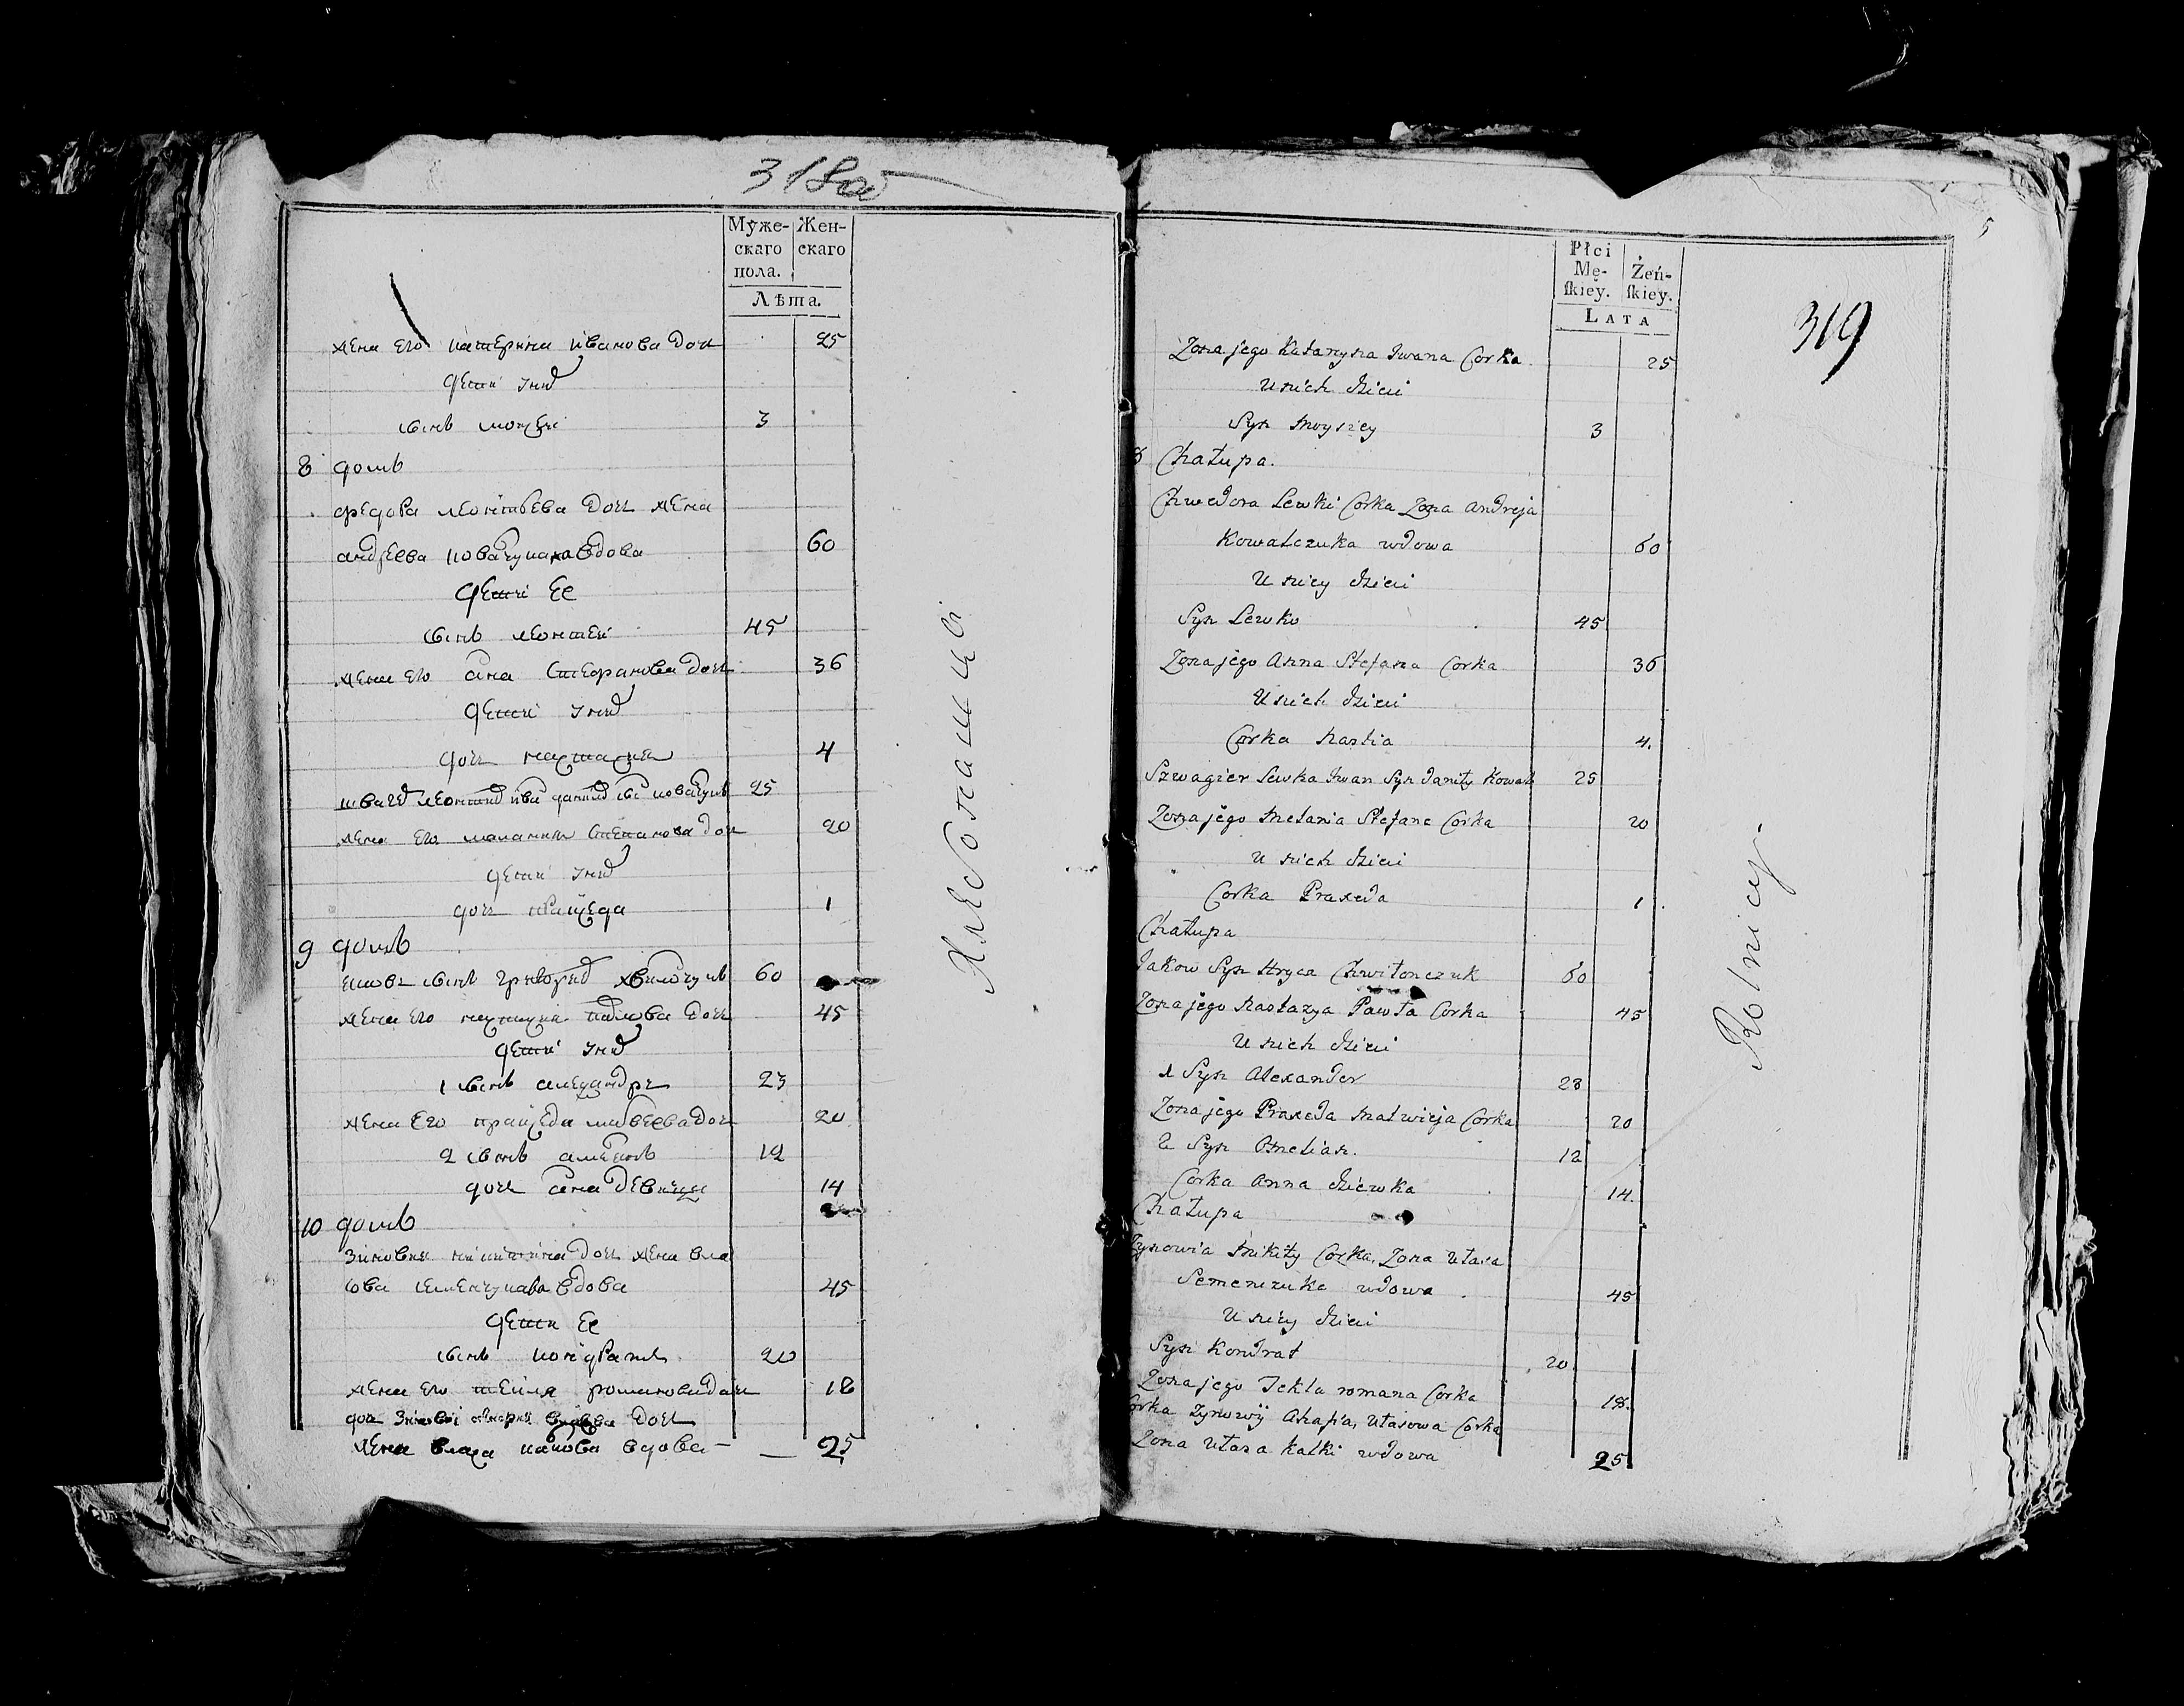 318 об
Муже-
скаго
пола.
Жен-
скаго
Лѣта
жена его катерина иванова доч 25
дети их
сынъ мойсей 3
8 домъ
федора леонтьева доч жена
андреева ковалчука вдова 60
дети ее
сынъ леонтей 45
жена его анна стефанова доч 36
дети их
доч настасия 4
швагер 25
жена его малания степанова доч 20
дети их
доч праѯеда 1
9 домъ
яковъ сынъ григорие хвилончукъ 60
жена его настасия павлова доч 45
дети их
1 сынъ алеѯандръ 23
жена его праѯеда матвеева доч 20
2 сынъ 12
доч анна девица 14
10 домъ
зиновия никитина доч жена вла
сова семенчука вдова 45
дети ее
сынъ кондратъ 20
жена его текля романова доч 18
доч
жена вдова 25
Хлебопашцы
Płci
Mę-
ſkiey.
Żeń-
ſkiey.
LATA
319
5
Zona jego Katarzyna Iwana Corka 25
U nich dzieci
Syn Moyszey 3
8 Chałupa.
Chwedora Lewki Corka Zona Andreja
Kowalczuka wdowa 60
U niey dzieci
Syn Lewko 45
Zona jego Anna Stefana Corka 36
U nich dzieci
Corka Nastia 4.
Szwagier Lewka Iwan Syn Daniły Kowal 25
Zona jego Melania Stefana Corka 20
U nich dzieci
Corka Praxeda 1
Chałupa
Jakow Syn Hryca Chwilonczuk 60
Zona jego Nastazya Pawła Corka 45
U nich dzieci
1 Syn Alexander 28
Zona jego Praxeda Matwieja Corka 20
2 Syn Omelian. 12
Corka Anna dziewka 14.
Chałupa
Zynowia Mikity Corka, Zona Ułasa
Semenczuka wdowa 45
U niey dzieci
Syn Kondrat 20
Zona jego Tekla Romana Corka 18.
Corka Zynowij Ahafia, Ułasowa Corka
Zona Ułasa Kalki wdowa 25
Rolnicy